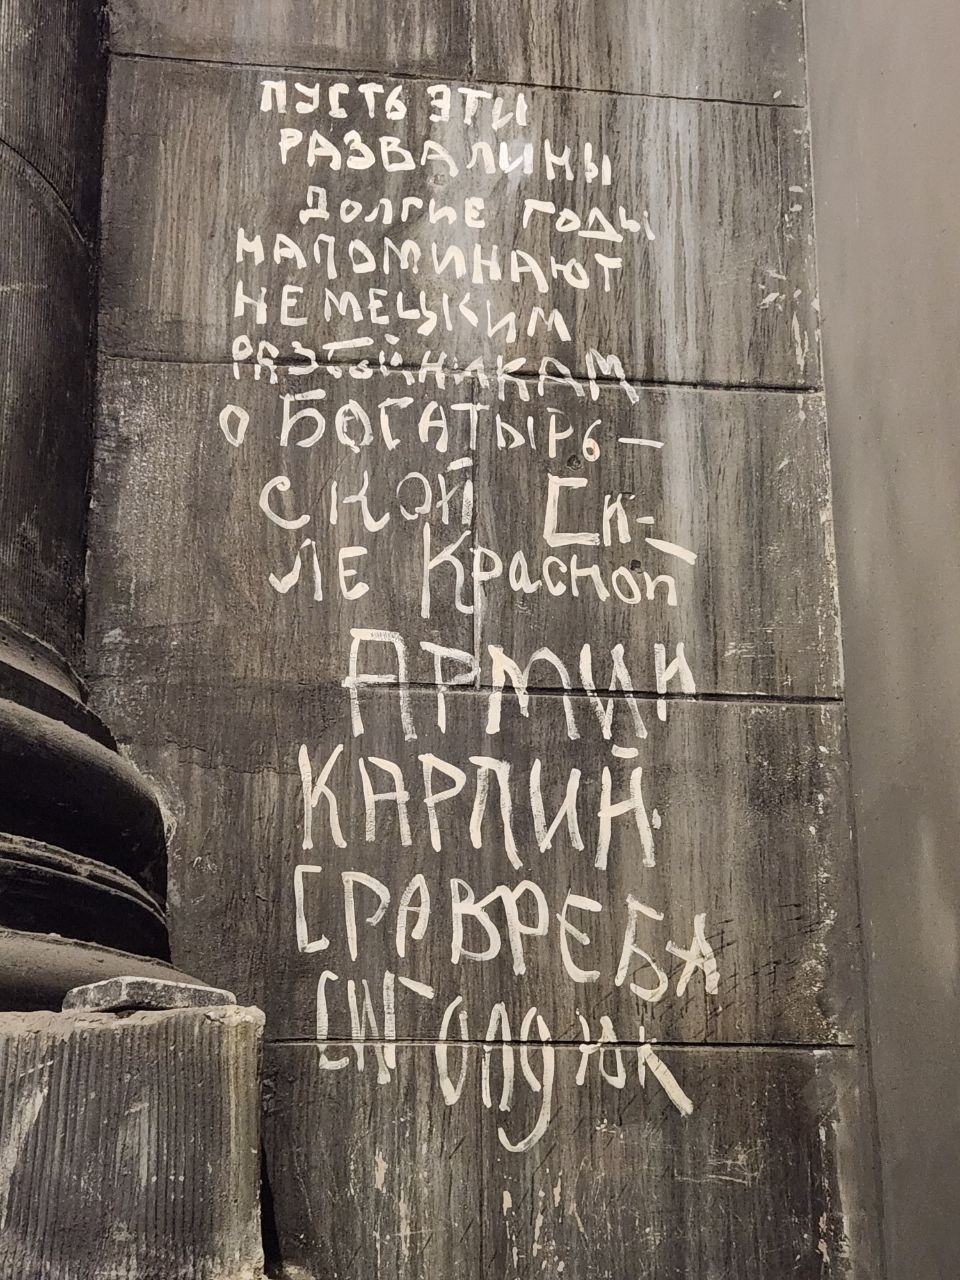 ПУСТЬ ЭТИ
РАЗВАЛИНЫ
ДОЛГИЕ ГОДЫ
НАПОМИНАЮТ
НЕМЕЦКИМ
РАЗБОЙНИКАМ
О БОГАТЫРЬ-
СКОЙ СИ-
ЛЕ Красной
АРМИИ
КАРПИЙ